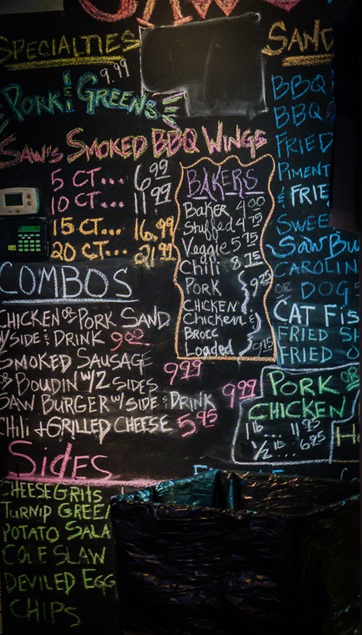 SAW'S
SPECIALTIES
9.99
PORK & GREENS
SAW'S SMOKED BBQ WINGS
5 CT... 6.99
10 CT... 11.99
15 CT... 16.99
20 CT... 21.99
BAKERS
Baker 4.00
Stuffed 4.75
Veggie 5.75
Chili 8.75
Pork
Chicken
Chicken &
Brocc
Loaded
COMBOS
CHICKEN OR PORK SAND
W/SIDE & DRINK 9.00
SMOKED SAUSAGE
OR BOUDIN W/2 SIDES 9.99
SAW BURGER W/SIDE & DRINK 9.99
CHILI & GRILLED CHEESE 5.95
SIDES
CHEESE GRITS
TURNIP GREE
POTATO SALA
COLE SLAW
DEVILED EGG
CHIPS
SAND
BBQ
BBQ
FRIED
PIMENT
& FRIE
SWEE
SAW BU
CAROLIN
OR DOG
CAT FIS
FRIED SH
FRIED
PORK OR
CHICKEN
1 lb 11.95
1/2 lb... 6.95